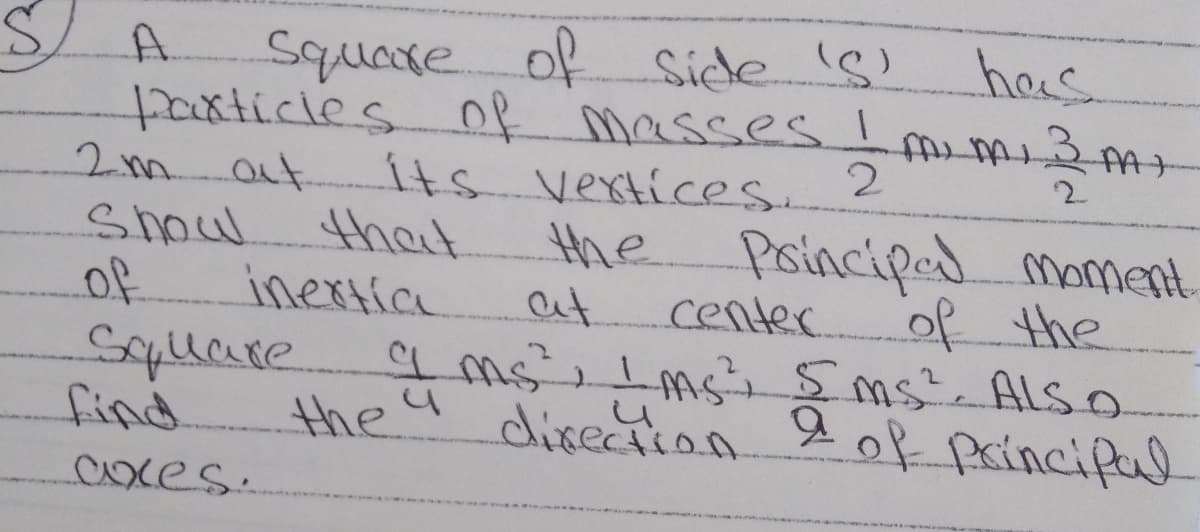 S) A Square of side 's' has
particles of masses 1/2 m, m, 3/2 m,
2m at its vertices.
Show that the Principal moment
of inertia at center of the
Square 9/4 ms², 1/4 ms², 5/2 ms². Also
find the direction of principal
axes.